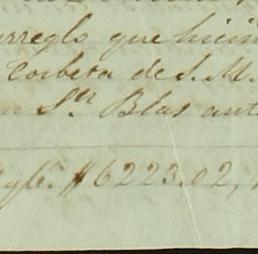 arreglo que hicim
Corbeta de S. M.
n Sn Blas ant
yle. $6223.02,